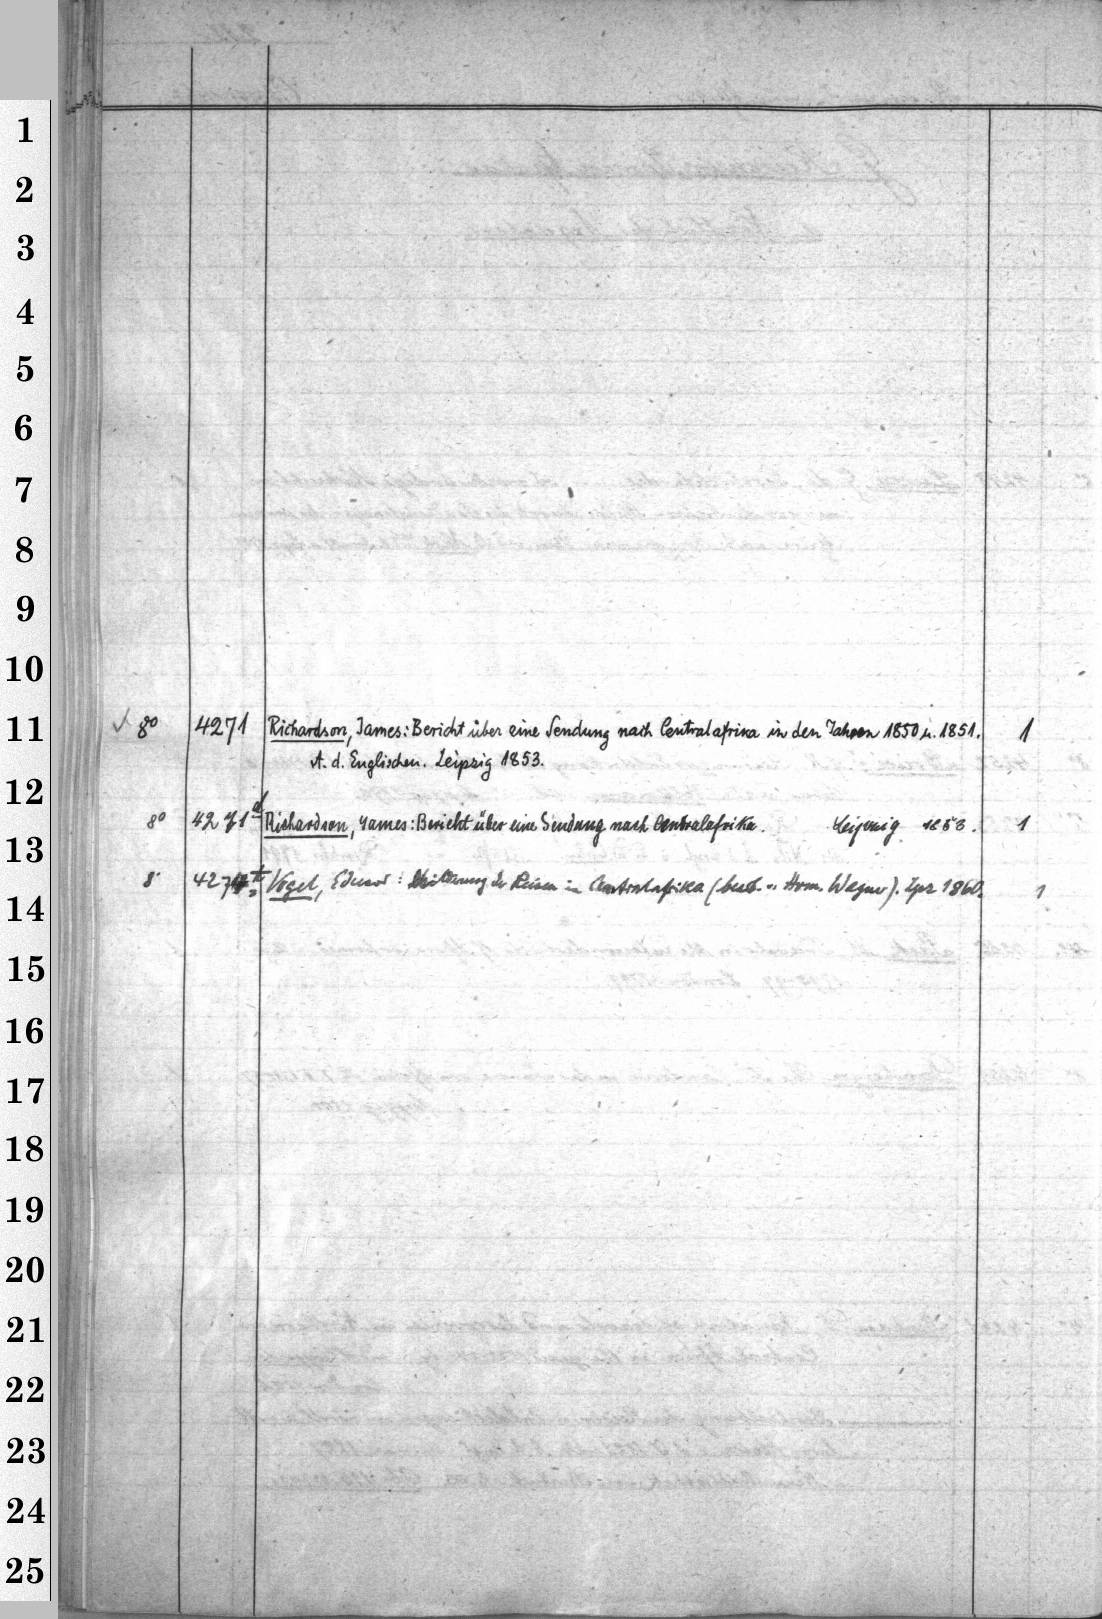 1
2
3
4
5
6
7
8
9
10
11
12
13
14
15
16
17
18
19
20
21
22
23
24
25
8º 4271 Richardson, James: Bericht über eine Sendung nach Centralafrika in den Jahren 1850 u. 1851. 1
A. d. Englischen. Leipzig 1853.
8º 4271 a Richardson, James: Bericht über eine Sendung nach Centralafrika. Leipzig 1853. 1
8º Vogel, Eduard: Schilderung der Reisen in Centralafrika (bearb. v. Herm. Wagner). Lpz 1860. 1